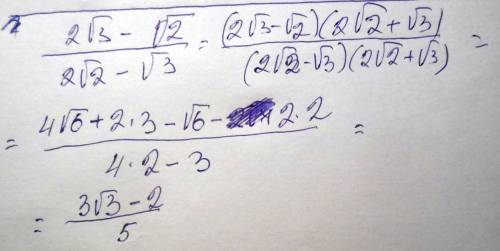 (2√3 - √2)/(2√2 - √3) = ((2√3-√2)(2√2+√3))/((2√2-√3)(2√2+√3)) =
= (4√6 + 2·3 - √6 - 2·2)/(4·2 - 3) =
= (3√3 - 2)/5